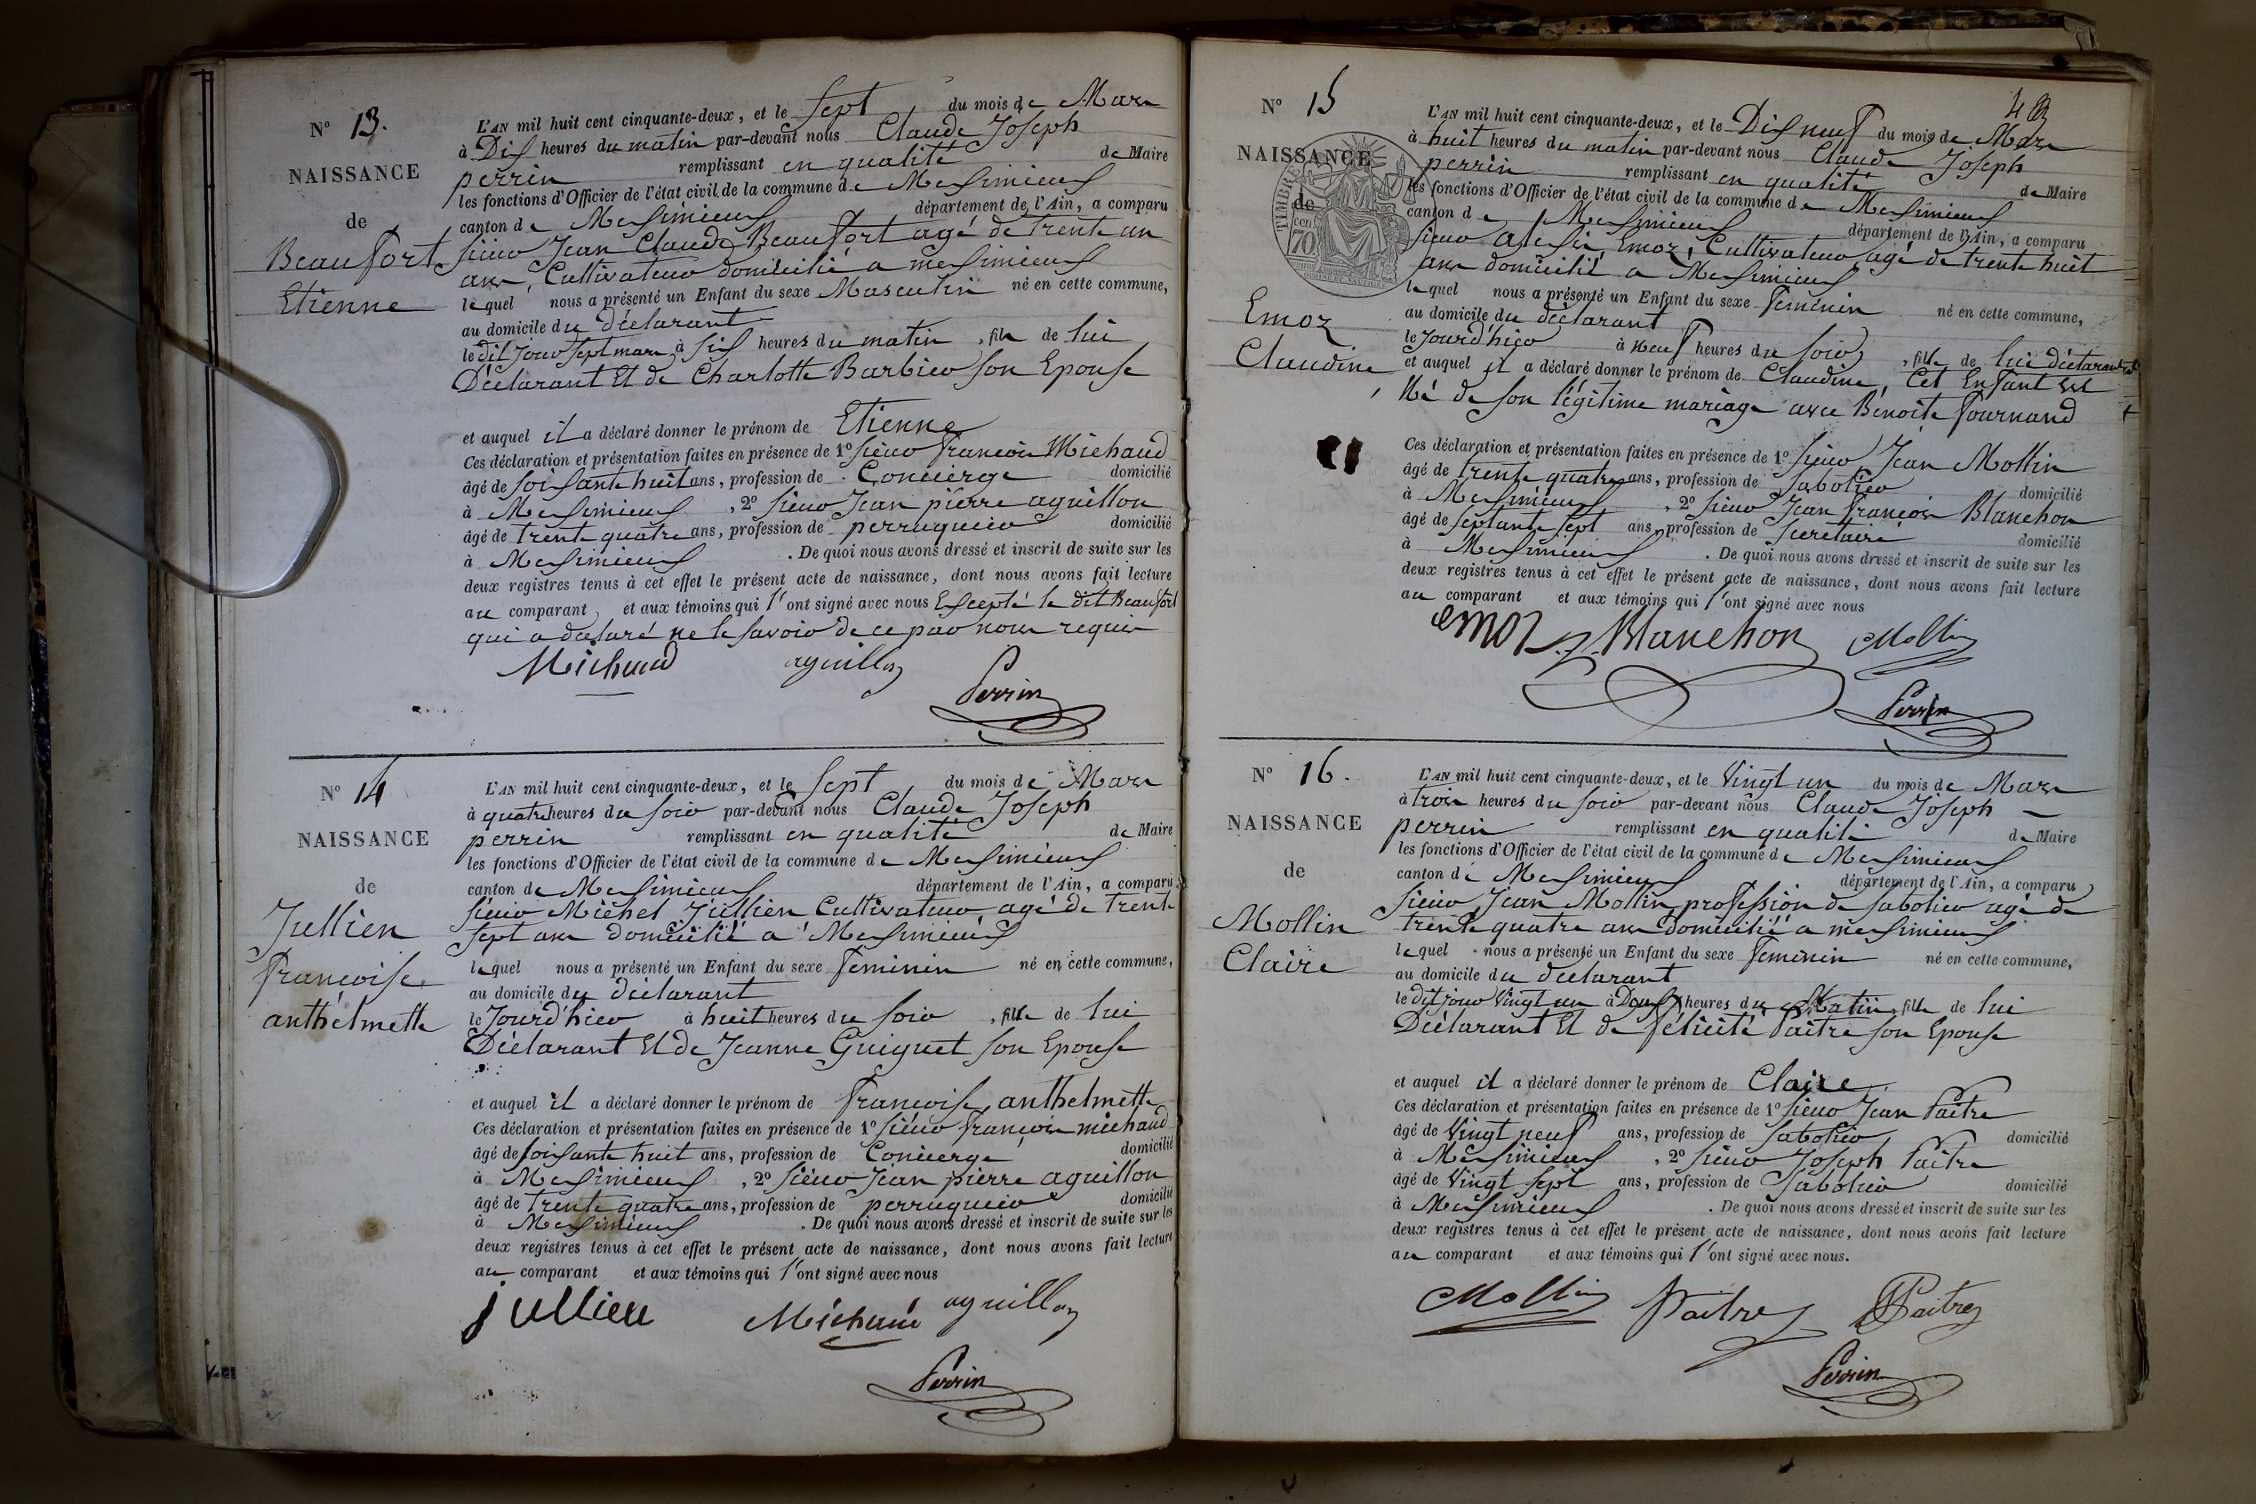 N° 13.
NAISSANCE
de
Beaufort
Etienne
L'AN mil huit cent cinquante-deux, et le Sept du mois de Mars
à Dix heures du matin par-devant nous Claude Joseph
perrin remplissant en qualité de Maire
les fonctions d'Officier de l'état civil de la commune de Meximieux
canton de Meximieux département de l'Ain, a comparu
Sieur Jean Claude Beaufort agé de trente un
ans, Cultivateur domicilié a meximieux
lequel nous a présenté un Enfant du sexe Masculin né en cette commune,
au domicile du déclarant
le dit jour sept mars à six heures du matin, fils de lui
Déclarant Et de Charlotte Barbier son Epouse
et auquel il a déclaré donner le prénom de Etienne
Ces déclaration et présentation faites en présence de 1° Sieur francois Michaud
âgé de soixante huit ans, profession de Concierge domicilié
à Meximieux, 2° Sieur Jean pierre aguillon
âgé de trente quatre ans, profession de perruquier domicilié
à Meximieux. De quoi nous avons dressé et inscrit de suite sur les
deux registres tenus à cet effet le présent acte de naissance, dont nous avons fait lecture
au comparant et aux témoins qui l'ont signé avec nous Excepté le dit Beaufort
qui a déclaré ne le savoir de ce par nous requis
Michaud aguillon
Perrin
N° 14
NAISSANCE
de
Jullien
francoise
anthelmette
L'AN mil huit cent cinquante-deux, et le Sept du mois de Mars
à quatre heures du soir par-devant nous Claude Joseph
perrin remplissant en qualité de Maire
les fonctions d'Officier de l'état civil de la commune de Meximieux
canton de Meximieux département de l'Ain, a comparu
Sieur Michel Jullien Cultivateur agé de trente
sept ans domicilié a Meximieux
lequel nous a présenté un Enfant du sexe feminin né en cette commune,
au domicile du déclarant
le Jourd'hier à huit heures du soir, fille de lui
Déclarant Et de Jeanne Guiguet son Epouse
et auquel il a déclaré donner le prénom de francoise anthelmette
Ces déclaration et présentation faites en présence de 1° Sieur francois michaud
âgé de soixante huit ans, profession de Concierge domicilié
à Meximieux, 2° Sieur Jean pierre aguillon
âgé de trente quatre ans, profession de perruquier domicilié
à Meximieux. De quoi nous avons dressé et inscrit de suite sur les
deux registres tenus à cet effet le présent acte de naissance, dont nous avons fait lecture
au comparant et aux témoins qui l'ont signé avec nous
jullien Michaud aguillon
Perrin
N° 15
NAISSANCE
de
TIMBRE
70
Emoz
Claudine
L'AN mil huit cent cinquante-deux, et le Dix neuf du mois de Mars
à huit heures du matin par-devant nous Claude Joseph
perrin remplissant en qualité de Maire
les fonctions d'Officier de l'état civil de la commune de Meximieux
canton de Meximieux département de l'Ain, a comparu
Sieur Emoz, Cultivateur agé de trente huit
ans domicilié a Meximieux
lequel nous a présenté un Enfant du sexe feminin né en cette commune,
au domicile du déclarant
le Jourd'hier à neuf heures du soir, fille de lui déclarant
et auquel il a déclaré donner le prénom de Claudine, Cet Enfant Est
Né de son légitime mariage avec Benoite Fournand
Ces déclaration et présentation faites en présence de 1° Sieur Jean Mollin
âgé de trente quatre ans, profession de Sabotier domicilié
à Meximieux, 2° Sieur Jean françois Blanchon
âgé de septante sept ans, profession de Secretaire domicilié
à Meximieux. De quoi nous avons dressé et inscrit de suite sur les
deux registres tenus à cet effet le présent acte de naissance, dont nous avons fait lecture
au comparant et aux témoins qui l'ont signé avec nous
emoz Blanchon Mollin
Perrin
N° 16.
NAISSANCE
de
Mollin
Claire
L'AN mil huit cent cinquante-deux, et le Vingt un du mois de Mars
à trois heures du soir par-devant nous Claude Joseph
perrin remplissant en qualité de Maire
les fonctions d'Officier de l'état civil de la commune de Meximieux
canton de Meximieux département de l'Ain, a comparu
Sieur Jean Mollin profession de sabotier agé de
trente quatre ans domicilié a meximieux
lequel nous a présenté un Enfant du sexe feminin né en cette commune,
au domicile du déclarant
le dit jour Vingt un à Deux heures du Matin, fille de lui
Déclarant Et de félicité Paitre son Epouse
et auquel il a déclaré donner le prénom de Claire
Ces déclaration et présentation faites en présence de 1° Sieur Jean Paitre
âgé de Vingt neuf ans, profession de Sabotier domicilié
à Meximieux, 2° Sieur Joseph Paitre
âgé de Vingt sept ans, profession de Sabotier domicilié
à Meximieux. De quoi nous avons dressé et inscrit de suite sur les
deux registres tenus à cet effet le présent acte de naissance, dont nous avons fait lecture
au comparant et aux témoins qui l'ont signé avec nous.
Mollin Paitre Paitre
Perrin